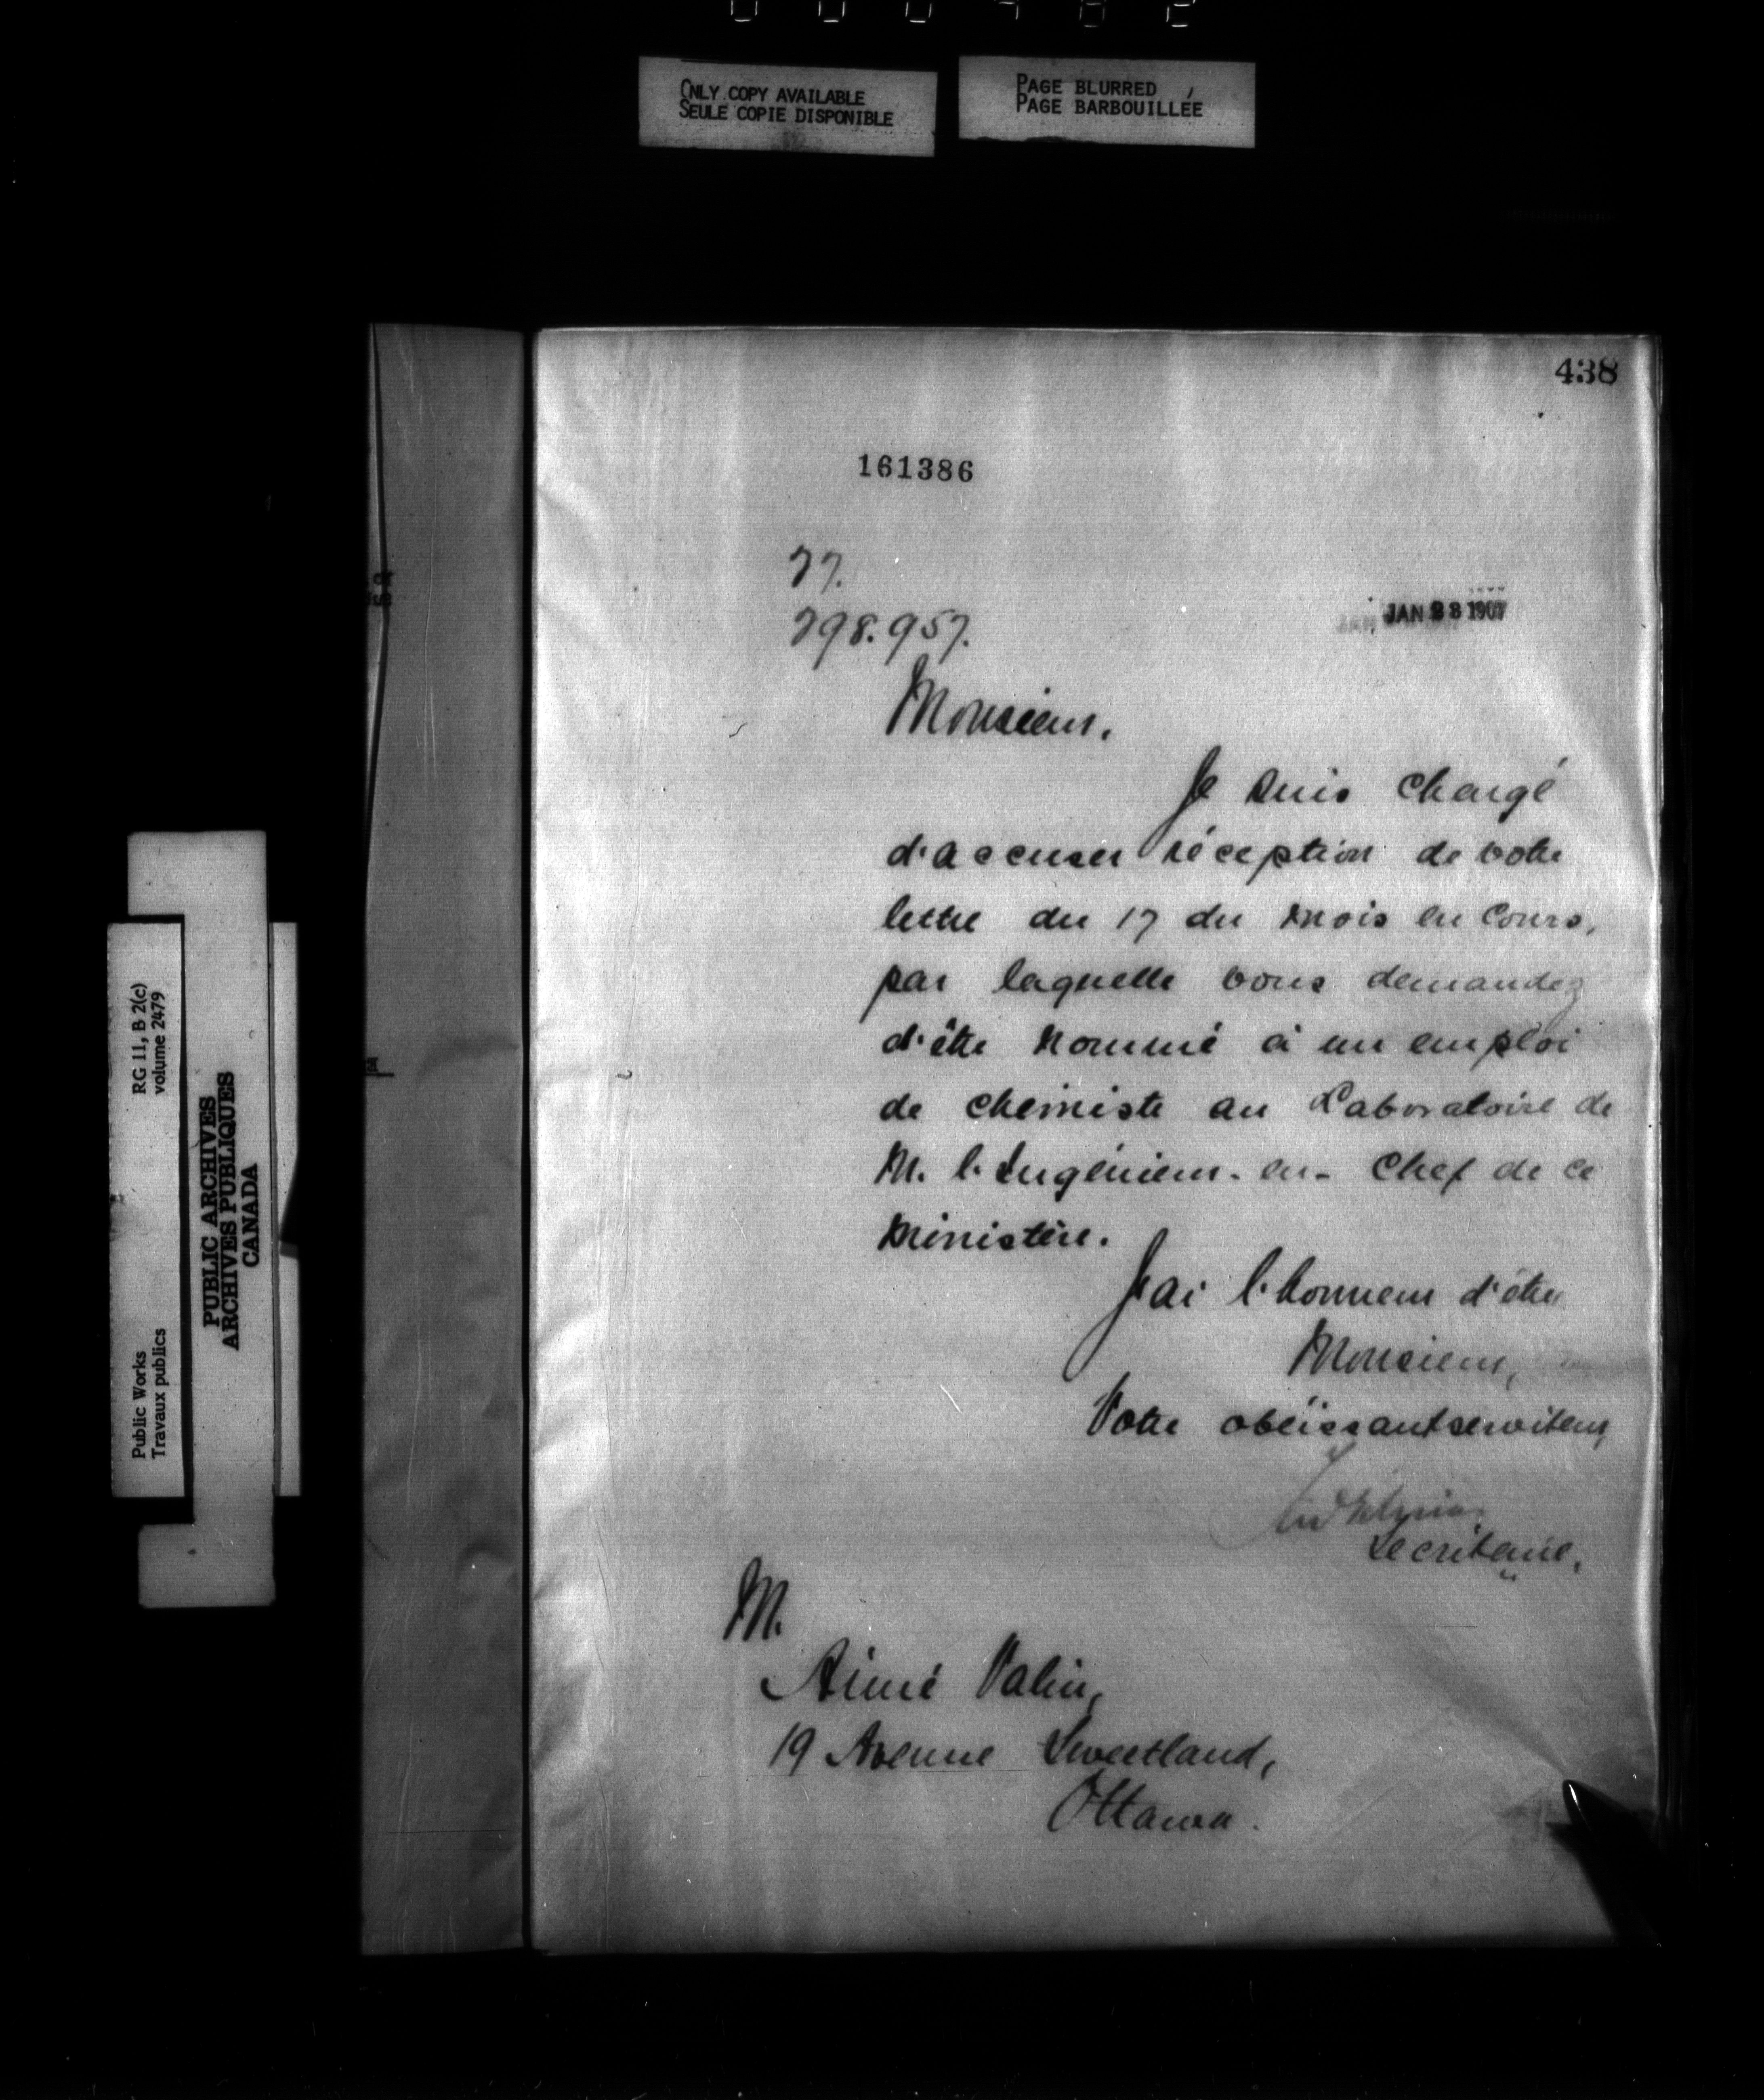 ONLY COPY AVAILABLE
SEULE COPIE DISPONIBLE
PAGE BLURRED
PAGE BARBOUILLÉE
438
161386
77.
298.957.
JAN 23 1907
Monsieur,
Je suis chargé
d'accuser réception de votre
lettre du 17 du mois en cours,
par laquelle vous demandez
d'être nommé à un emploi
de chimiste au Laboratoire de
M. l'Ingénieur-en-Chef de ce
Ministère.
J'ai l'honneur d'être
Monsieur,
Votre obéissant serviteur,
Secrétaire.
M.
Aimé Valin,
19 Avenue Sweetland,
Ottawa.
RG 11, B 2(c)
volume 2479
Public Works
Travaux publics
PUBLIC ARCHIVES
ARCHIVES PUBLIQUES
CANADA